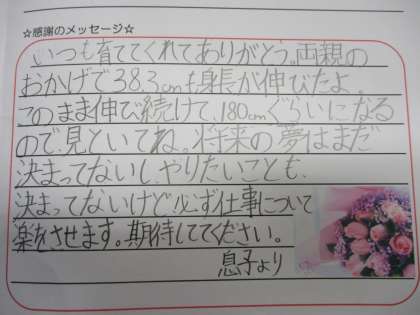 ☆感謝のメッセージ☆
いつも育ててくれてありがとう。両親の
おかげで38.3cmも身長が伸びたよ。
このまま伸び続けて、180cmぐらいになる
ので、見といてね。将来の夢はまだ
決まってないし、やりたいことも、
決まってないけど必ず仕事について
楽をさせます。期待しててください。
息子より